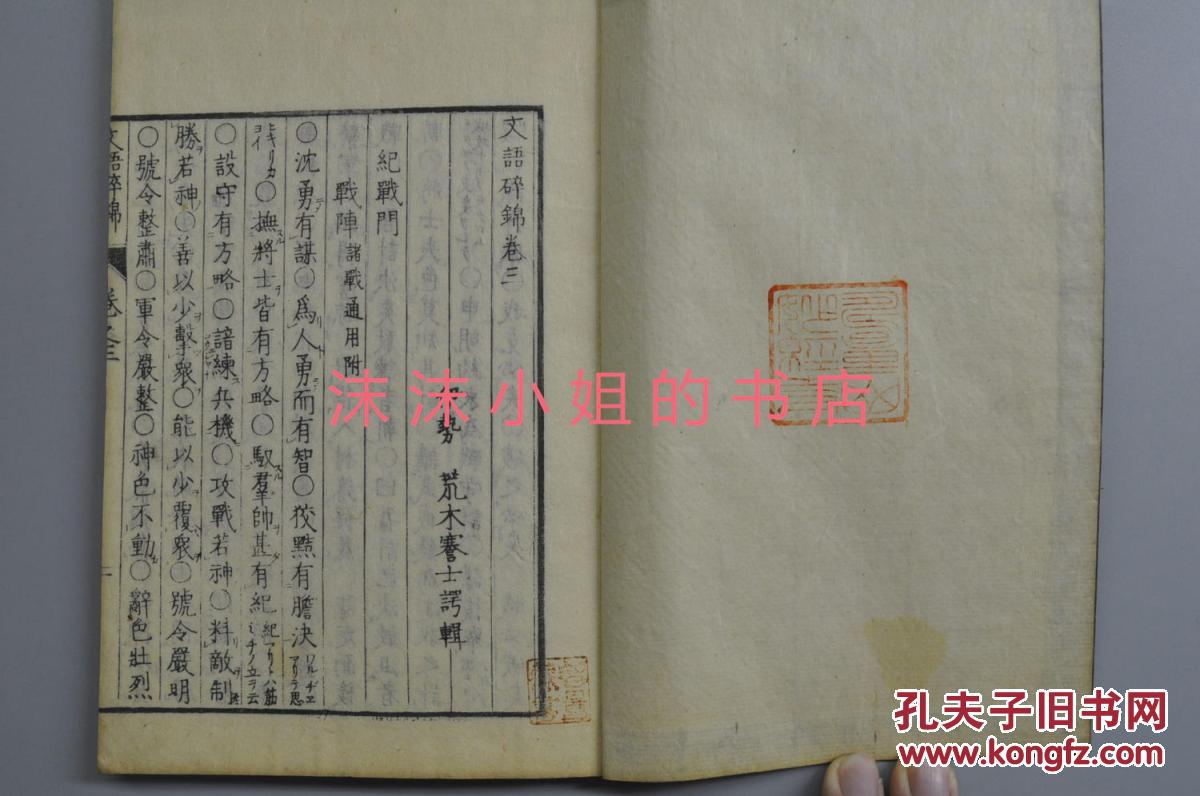 文語碎錦卷三
勢　荒木蹇士諤輯
紀戰門
戰陣 諸戰通用附
○沈勇有謀○爲人勇而有智○狡黠有膽決 ワルヂエアリテ思
ヒキリカヨイ○撫將士皆有方略○馭羣帥甚有紀 紀アリトハ筋ミチノ立ヲ云
○設守有方略○諳練兵機○攻戰若神○料敵制
勝若神○善以少擊衆○能以少覆衆○號令嚴明
○號令整肅○軍令嚴整○神色不動○辭色壯烈
文語碎錦 卷之三
沫沫小姐的书店
孔夫子旧书网
www.kongfz.com